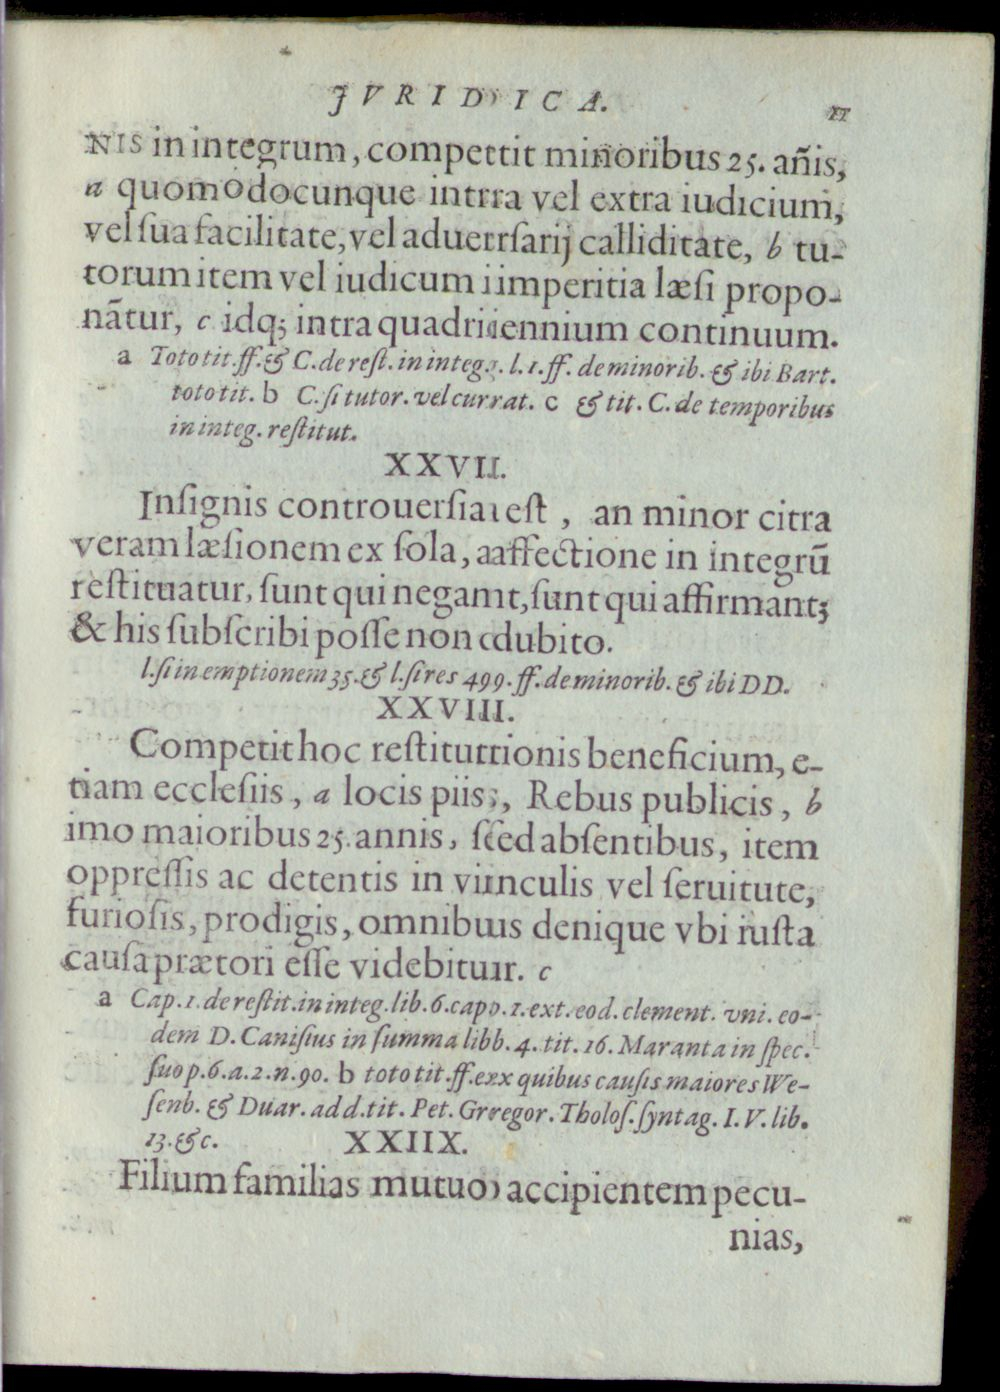 JVRIDICA. 11
NIS in integrum, competit minoribus 25. añis,
a quomodocunque intra vel extra iudicium,
vel ſua facilitate, vel aduerſarij calliditate, b tu-
torum item vel iudicum imperitia læſi propo-
nātur, c idq; intra quadriennium continuum.
a Toto tit. ff. & C. de reſt. in integ. l. 1. ff. de minorib. & ibi Bart.
toto tit. b C. ſi tutor. vel currat. c & tit. C. de temporibus
in integ. reſtitut.
XXVII.
Inſignis controuerſia eſt, an minor citra
veram læſionem ex ſola, affectione in integrū
reſtituatur, ſunt qui negant, ſunt qui affirmant;
& his ſubſcribi poſſe non dubito.
l. ſi in emptionem 35. & l. ſi res 499. ff. de minorib. & ibi DD.
XXVIII.
Competit hoc reſtitutionis beneficium, e-
tiam eccleſiis, a locis piis, Rebus publicis, b
imo maioribus 25. annis, ſed abſentibus, item
oppreſſis ac detentis in vinculis vel ſeruitute,
furioſis, prodigis, omnibus denique vbi iuſta
cauſa prætori eſſe videbitur. c
a Cap. 1. de reſtit. in integ. lib. 6. cap. 1. ext. eod. clement. vni. eo-
dem D. Caniſius in ſumma lib. 4. tit. 16. Maranta in ſpec.
ſuo p. 6. a. 2. n. 90. b toto tit. ff. ex quibus cauſis maiores We-
ſenb. & Duar. ad d. tit. Pet. Gregor. Tholoſ. ſyntag. I. V. lib.
13. & c. XXIIX.
Filium familias mutuo accipientem pecu-
nias,